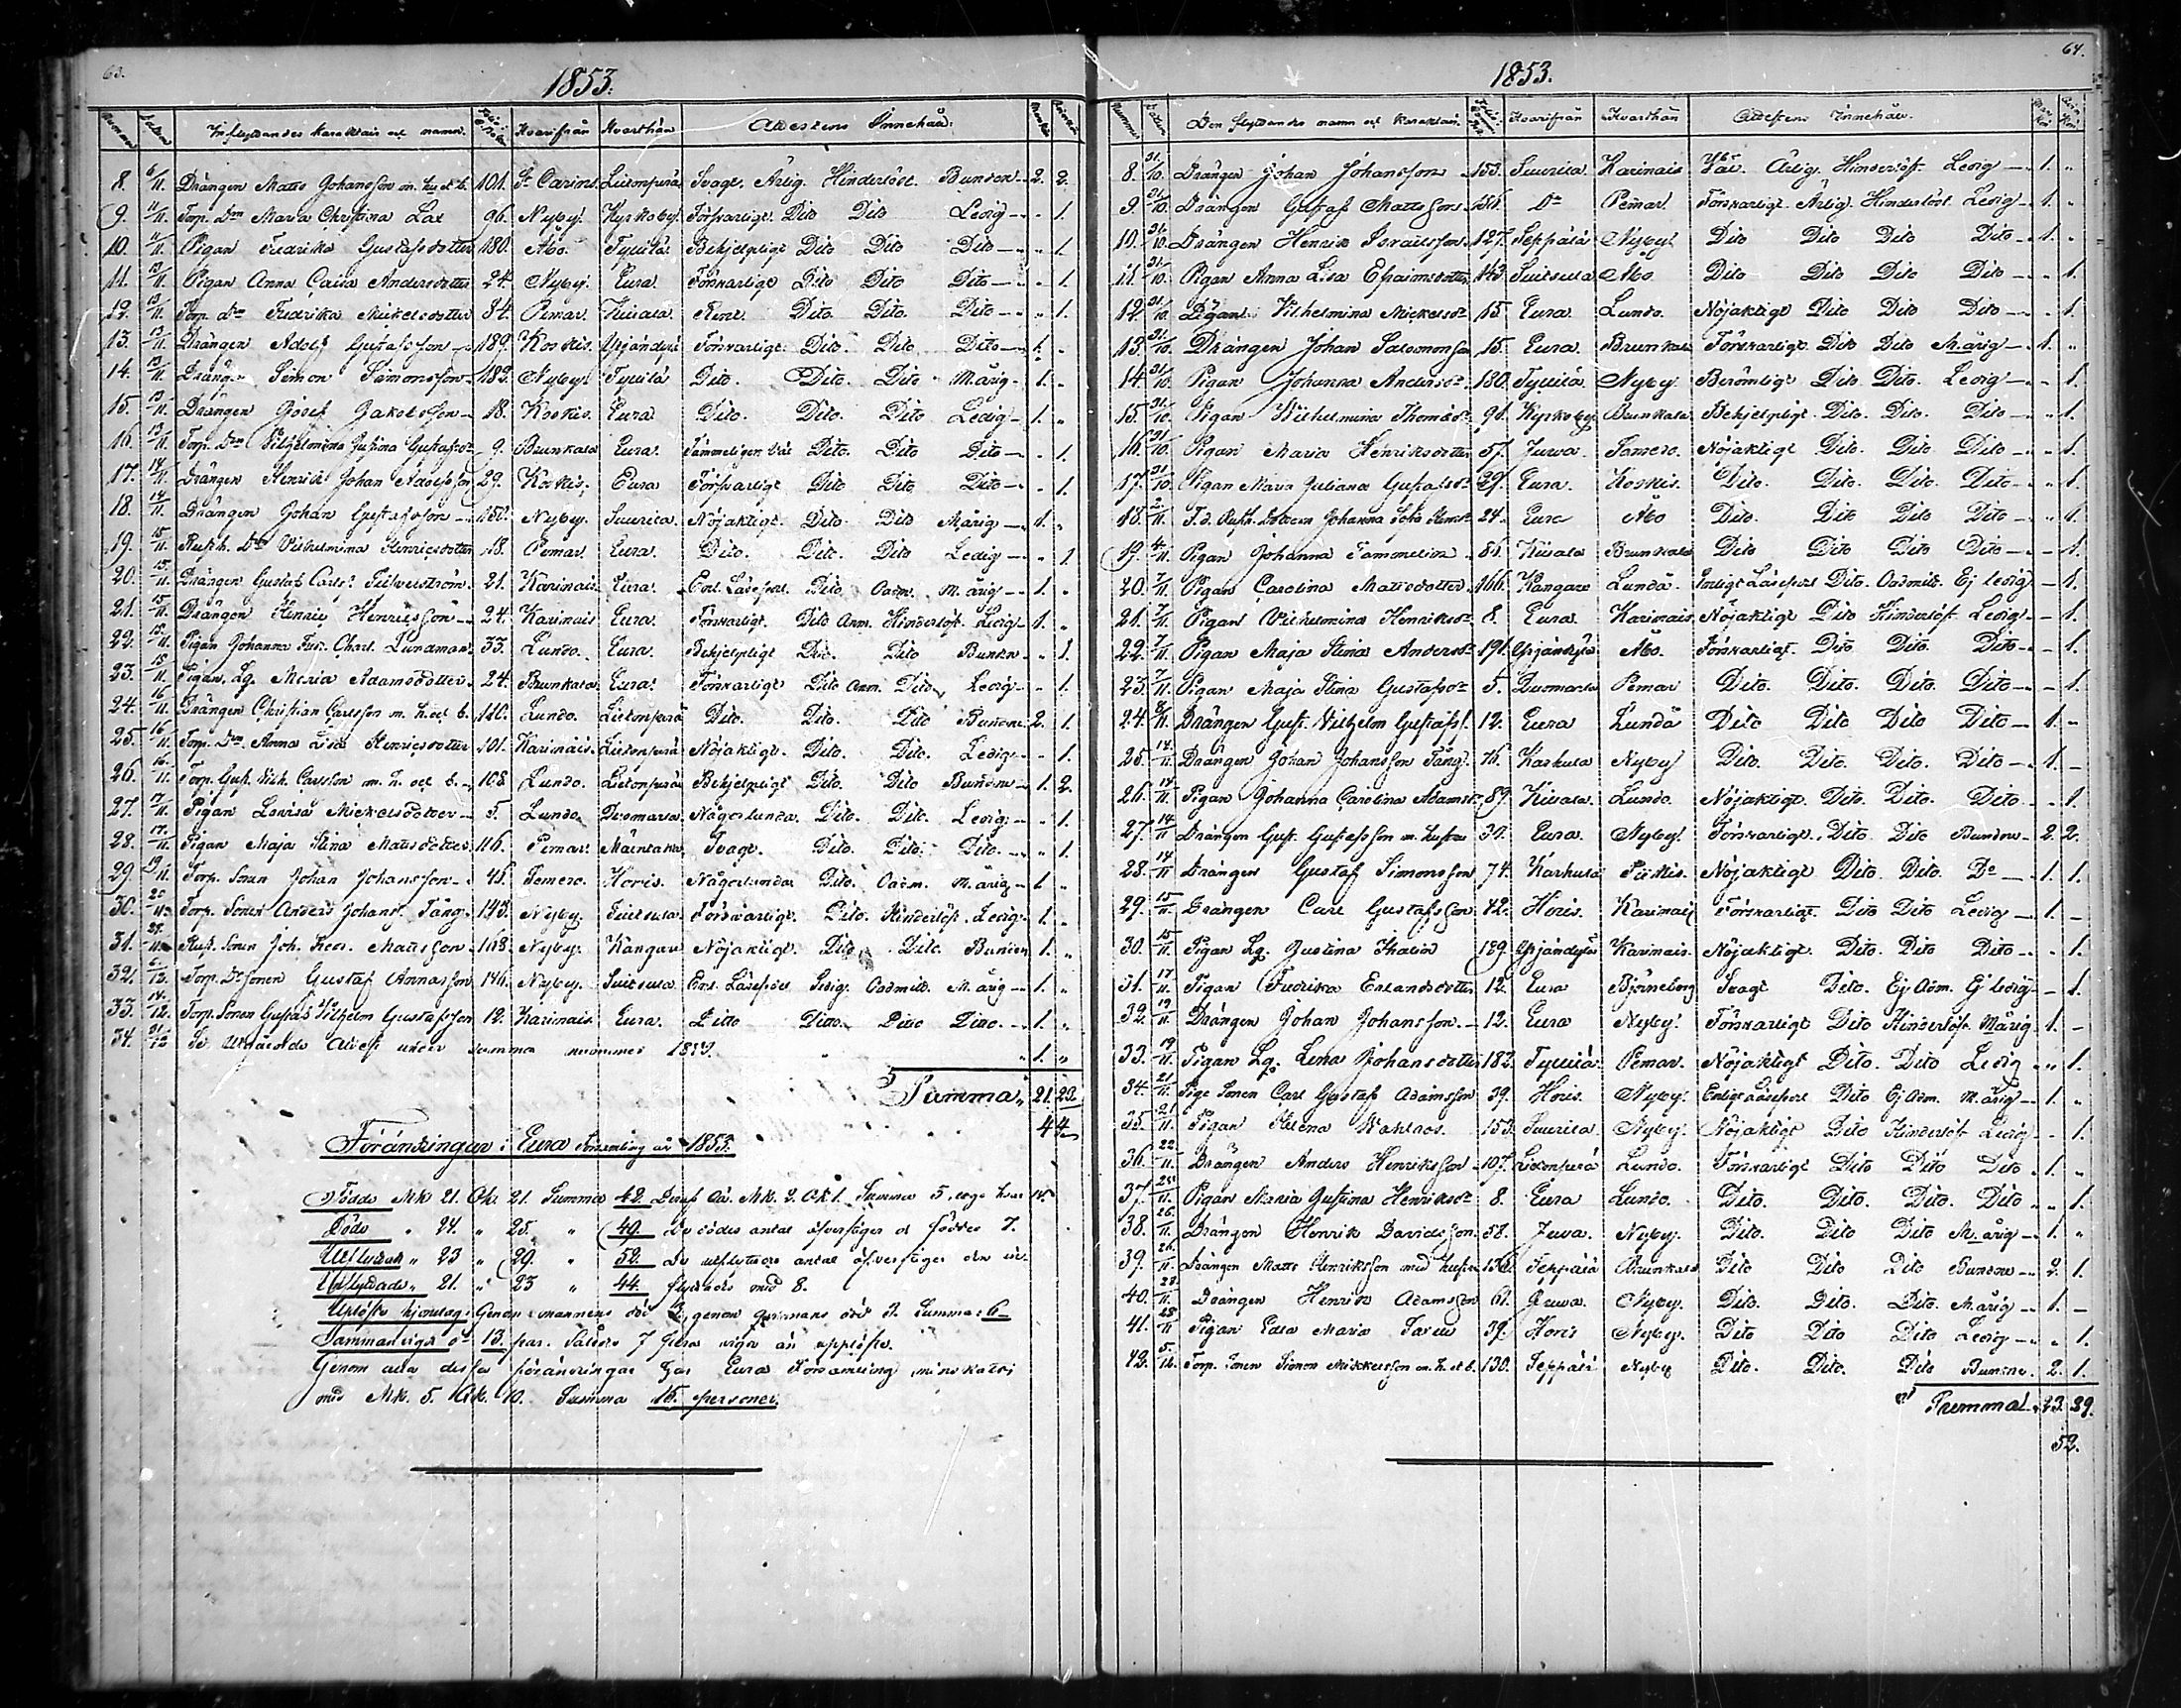 63.
1853.
Nummer Datum Inflyttandes karaktär och namn. Hvarifrån Hvarthän Attestens Innehåll. Mankön Qvinkön
8. 6/11. Drängen Matts Johansson m. hu. et b. 101. St Carins. Lietonperä Svagt. Ärlig. Hinderlöst. Bunden 2. 2.
9. 11/11. Torp. Dr Maria Christina Lax 96. Nyby. Kyrkoby. Försvarligt. Dito Dito Ledig " 1.
10. 11/11. Pigan Fredrika Gustafsdotter 180. Åbo. Tyllilä. Behjelpligt Dito Dito Dito " 1.
11. 13/11. Pigan Anna Caisa Andersdotter 24. Nyby. Eura. Försvarligt Dito Dito Dito " 1.
12. 13/11. Torp. Dr Fredrika Mickelsdotter 84. Pemar. Kiisala. Rent. Dito. Dito. Dito " 1.
13. 13/11. Drängen Adolf Gustafsson 189. Koskis. Ypjändylä Försvarligt. Dito. Dito. Dito 1. "
14. 13/11. Dräng. Simon Simonsson 182. Nyby. Tyllilä Dito. Dito. Dito M.årig 1. "
15. 13/11. Drängen Josef Jakobsson 18. Koskis. Eura Dito. Dito. Dito Ledig 1. "
16. 13/11. Torp. Dr Vilhelmina Justina Gustafsdr 9. Brunkala Eura. Tämmeligen väl Dito. Dito Dito " 1.
17. 14/11. Drängen Henrik Johan Adolfsson 29. Koskis. Eura Försvarligt Dito Dito Dito " 1.
18. 14/11. Drängen Johan Gustafsson 152. Nyby. Suurila. Nöjaktligt. Dito Dito M.årig 1. "
19. 15/11. Rusth. Dr Vilhelmina Henricsdotter 18. Pemar. Eura. Dito. Dito. Dito Ledig " 1
20. 15/11. Drängen Gustaf Carls. Silfverström 21. Karinais Eura. Enl. Läseförl. Dito Oadm. M. årig 1. "
21. 15/11. Drängen Henric Henricsson 24. Karinais Eura. Försvarligt. Dito Adm. Hinderlöst. Ledig 1. "
22. 15/11. Pigan Johanna Fred. Charl. Lundman 33. Lundo. Eura. Behjelpligt Dito. Dito Bunden " 1.
23. 15/11. Pigan, Lg. Maria Adamsdotter 24. Brunkala Eura. Försvarligt Dito Adm. Dito, Ledig " 1.
24. 16/11. Drängen Christian Carlsson m. h. och b. 110. Lundo. Lietonperä Dito. Dito. Dito Bunden 2. 1.
25. 16/11. Torp. Dr Anna Lisa Henricsdotter 101. Karinais. Lietonperä Nöjaktligt. Dito. Dito. Ledig " 1.
26. 16/11. Torp. Gust. Vilh. Carlsson m. h. och b. 108 Lundo. Lietonperä Behjelpligt Dito. Dito Bunden 1. 2.
27. 17/11. Pigan Lovisa Mickelsdotter 5. Lundo Duomarla Någorlunda. Dito. Dito. Ledig " 1.
28. 17/11. Pigan Maja Stina Mattsdotter 116. Pemar. Mäentaka Svagt. Dito. Dito. Dito. " 1.
29. 19/11. Torp. Son Johan Johansson 45. Somero. Horis. Någorlunda Dito. Oadm. M. årig 1. "
30. Torp. Sonen Anders Johans. Tång. 143. Nyby. Suitsula. Försvarligt. Dito. Hinderlöst. Ledig 1. "
31. Rust. Sonen Joh. Fred. Mattsson 168. Nyby. Kangare Nöjaktligt. Dito Dito. Bunden 1. "
32. 6/12. Torp. Dr sonen Gustaf Annasson 146. Nyby. Suitsula Enl. Läseförl. Ledig. Oadmitt. M. årig 1. "
33. 14/12. Torp. Sonen Gustaf Vilhelm Gustafsson 12. Karinais Eura. Ditto Ditto. Ditto Ditto. 1. "
34. 31/12 Se Utgående Attest under samma nummer 1. "
Summa. 21. 23.
44
Förändringar i Eura Församling år 1853.
Födde Mk 21. Qk. 21. Summa 42. Deraf Oä. Mk. 2. Qk 1.
Döde " 24. " 25. " 49. De dödes antal öfverstiger de föddes 7.
Utflyttade " 23 " 29. " 52. De utflyttades antal öfverstiger den in-
Inflyttade " 21. " 23 " 44. flyttades med 8.
Uplöste hjonelag: Genom mannens död genom qvinnans död Summa 6
Sammanvigde 13. par. Således 7 flera vigda än upplöste.
Genom alla dessa förändringar har Eura Församling minskats
med Mk. 5. Qk. 10. Summa 15. personer.
64.
1853.
Nummer Datum Den flyttandes namn och karaktär. Hvarifrån Hvarthän Attestens Innehåll.
8. 31/10. Drängen Johan Johansson 153. Suurila. Karinais Väl. Ärlig. Hinderlöst. Ledig 1. "
9. 31/10. Drängen Gustaf Mattsson Do Pemar. Försvarligt. Ärlig. Hinderlöst. Ledig 1. "
10. 31/10. Drängen Henrik Israelsson 127. Seppälä Nyby. Dito Dito Dito Dito 1. "
11. 31/10. Pigan Anna Lisa Efraimsdotter 143. Suitsula Åbo Dito Dito Dito Dito " 1.
12. 31/10. Pigan Vilhelmina Mickelsdr 15. Eura. Lundo. Nöjaktligt Dito Dito Dito " 1.
13. 31/10. Drängen Johan Salomonsson 15. Eura. Brunkala Försvarligt. Dito Dito M.årig 1. "
14. 31/10. Pigan Johanna Andersdr 180. Tyllilä. Nyby. Berömligt Dito. Dito. Ledig " 1.
15. 31/10. Pigan Wilhelmina Thomasdr 91. Kyrkoby Brunkala Behjelpligt. Dito. Dito. Dito " 1.
16. 31/10. Pigan Maria Henriksdotter 57. Juva. Somero. Nöjaktligt Dito. Dito Dito " 1.
17. 31/10. Pigan Maria Juliana Gustafsdr 29. Eura. Koskis. Dito. Dito. Dito. Dito " 1.
18. 2/11. F. d. Rusth. Dottern Johanna Sofia 24. Eura Åbo Dito. Dito Dito Dito " 1.
19. 4/11. Pigan Johanna Tammelin 81. Kiisala Brunkala Dito Dito Dito Dito 1.
20. 7/11. Pigan Carolina Mattsdotter 166. Kangare Lundo. Enligt Läseförl. Dito. Oadmitt. Ej ledig 1.
21. 7/11. Pigan Vilhelmina Henriksdr 8. Eura. Karinais. Nöjaktligt Dito Hinderlöst Ledig 1.
22. 7/11. Pigan Maja Stina Andersdr 191. Ypjändylä Åbo. Försvarligt. Dito Dito. Dito 1.
23. 7/11. Pigan Maja Stina Gustafsdr 5. Duomarla Pemar Dito. Dito. Dito. Dito 1.
24. 8/11. Drängen Gust. Vilhelm Gustafss. 12. Eura Lundo Dito Dito Dito Dito 1. "
25. 14/11. Drängen Johan Johansson Tång. 76. Karhula Nyby Dito. Dito. Dito. Dito 1. -
26. 14/11. Pigan Johanna Carolina Adamsdr 89. Kiisala. Lundo. Nöjaktligt. Dito. Dito. Dito " 1.
27. 14/11 Drängen Gust. Gustafsson m. hustru 30. Eura. Nyby. Försvarligt. Dito. Dito Bunden 2. 2.
28. 14/11 Drängen Gustaf Simonsson 74. Karhula Piikkis. Nöjaktligt Dito. Dito. Do 1. 1.
29. 15/11. Drängen Carl Gustafsson 42. Horis. Karinais Försvarligt. Dito Dito Ledig 1. -
30. 15/11. Pigan Lg. Justina Italin 189. Ypjändylä Karinais. Nöjaktligt. Dito. Dito Dito " 1.
31. 17/11. Pigan Fredrika Erlandsdotter 12. Eura Björneborg Svagt Dito. Ej Adm. Ej ledig - 1.
32. 19/11. Drängen Johan Johansson. 12. Eura Nyby. Försvarligt Dito Hinderlöst. M.årig 1. -
33. 19/11. Pigan Lg. Lena Johansdotter 182. Tyllilä. Pemar. Nöjaktligt Dito. Dito Ledig " 1.
34. 21/11. Pige Sonen Carl Gustaf Adamsson 39. Horis. Nyby. Enligt Läseförl Dito Ej Adm. M. årig 1. "
35. 21/11. Pigan Helena Wahlroos. 153. Suurila. Nyby. Nöjaktligt Dito Hinderlöst Ledig " 1.
36. 22/11. Drängen Anders Henriksson 107. Lietonperä Lundo. Försvarligt Dito Dito Dito 1. "
37. 25/11. Pigan Maria Justina Henriksdr 8. Eura Lundo. Dito. Dito. Dito. Dito " 1.
38. 26/11. Drängen Henrik Davidsson. 58. Juva. Nyby. Dito. Dito Dito M. årig 1. "
39. 26/11. Drängen Matts Henriksson med hustru Seppälä Brunkala Dito Dito Dito Bunden 2. 1.
40. 28/11. Drängen Henrik Adamsson 61. Juva. Nyby. Dito. Dito. Dito. M.årig 1. -
41. 28/11 Pigan Edla Maria 39. Horis Nyby. Dito Dito Dito Ledig " 1.
42. 5/12. Torp. Sonen Simon Mickelsson m. h. et b. 130. Seppälä Nyby Dito. Dito. Dito Bunden. 2. 1.
Summa. 23. 29.
52.